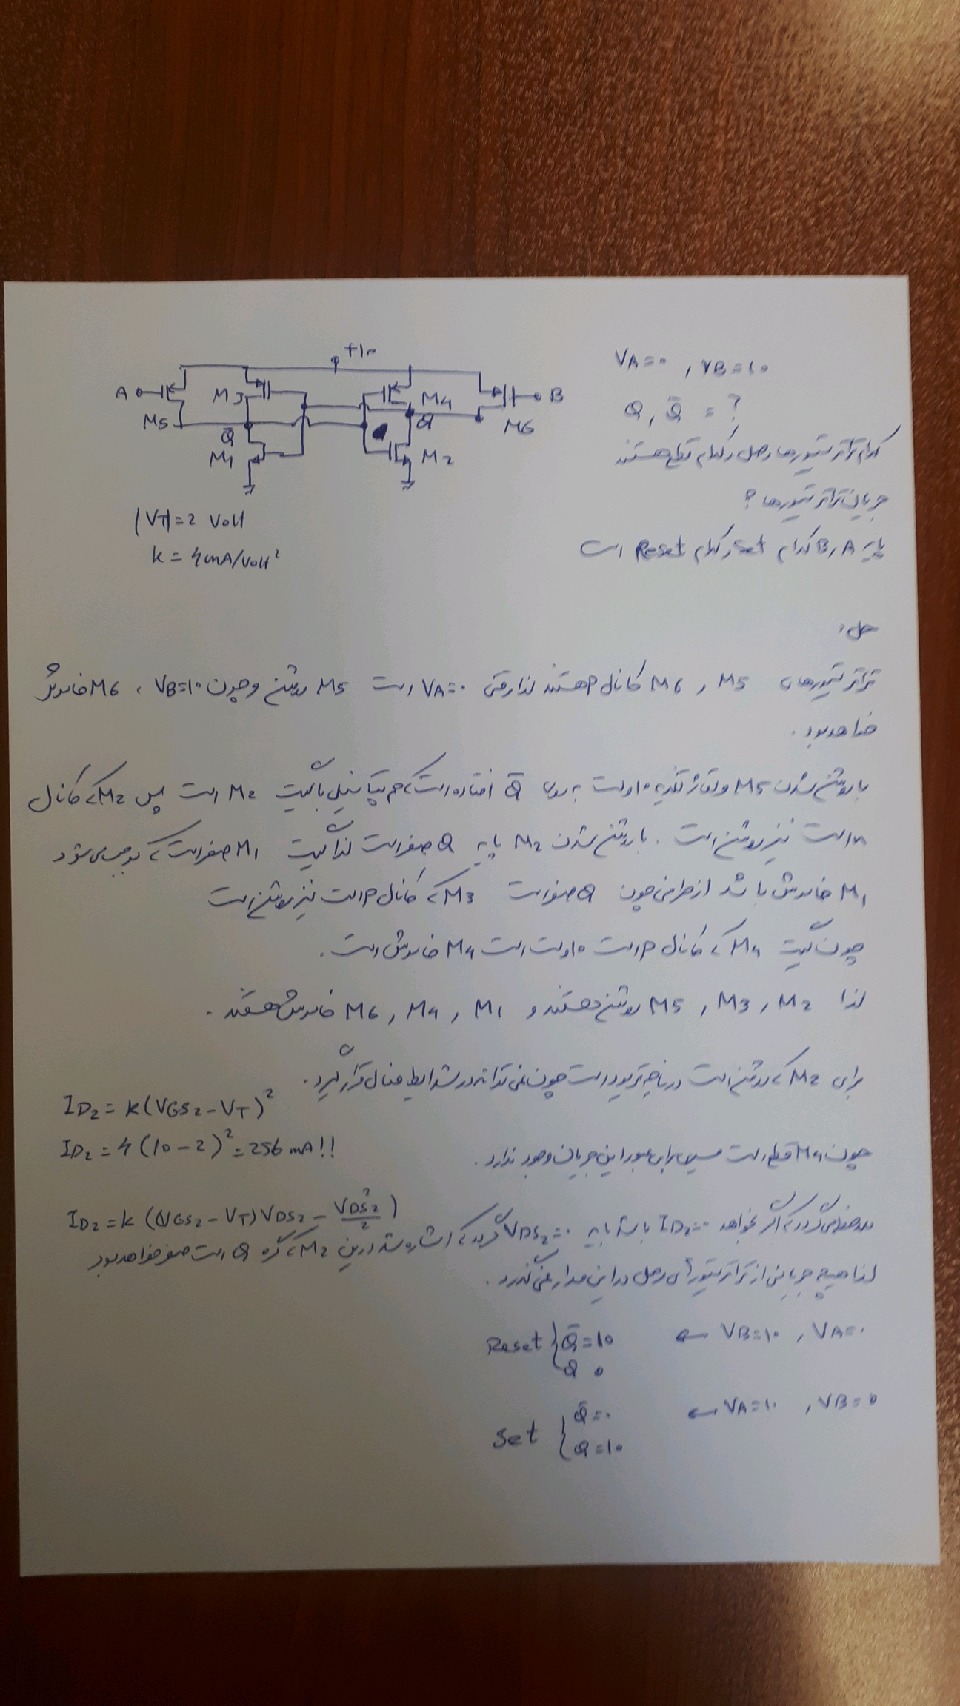 +10
A
M5
M3
M4
B
M6
Q̄
Q
M1
M2
|VT|=2 Volt
k = 4mA/volt²
VA=0 , VB=10
Q , Q̄ = ?
کدام ترانزیستورها وصل و کدام قطع هستند
جریان ترانزیستورها ؟
پایه A و B کدام Set و کدام Reset است
حل:
ترانزیستورهای M5 و M6 کانال p هستند لذا وقتی VA=0 است M5 روشن و چون VB=10 ، M6 خاموش
خواهد بود .
با روشن شدن M5 ولتاژ تغذیه 10 ولت به روی Q̄ افتاده است که هم پتانسیل با گیت M2 است پس M2 که کانال
n است نیز روشن است . با روشن شدن M2 پایه Q صفر است لذا گیت M1 صفر است که موجب می شود
M1 خاموش باشد از طرفی چون Q صفر است M3 که کانال p است نیز روشن است
چون گیت M4 که کانال p است 10 ولت است M4 خاموش است .
لذا M2 و M3 و M5 روشن هستند و M1 و M4 و M6 خاموش هستند .
برای M2 که روشن است در ناحیه تریود است چون نمی تواند در شرایط فعال قرار گیرد .
ID2 = k(VGS2 - VT)²
ID2 = 4(10-2)² = 256 mA!!
چون M4 قطع است مسیری برای عبور این جریان وجود ندارد .
ID2 = k ((VGS2 - VT)VDS2 - VDS2²/2)
که اگر بخواهد ID2=0 باشد باید VDS2=0 گردد که اشاره شد درین M2 که گره Q است صفر خواهد بود
لذا هیچ جریانی از ترانزیستورهای وصل در این مدار نمی گذرد .
Reset { Q̄=10 Q 0 ← VB=10 , VA=0
Set { Q̄=0 Q=10 ← VA=10 , VB=0